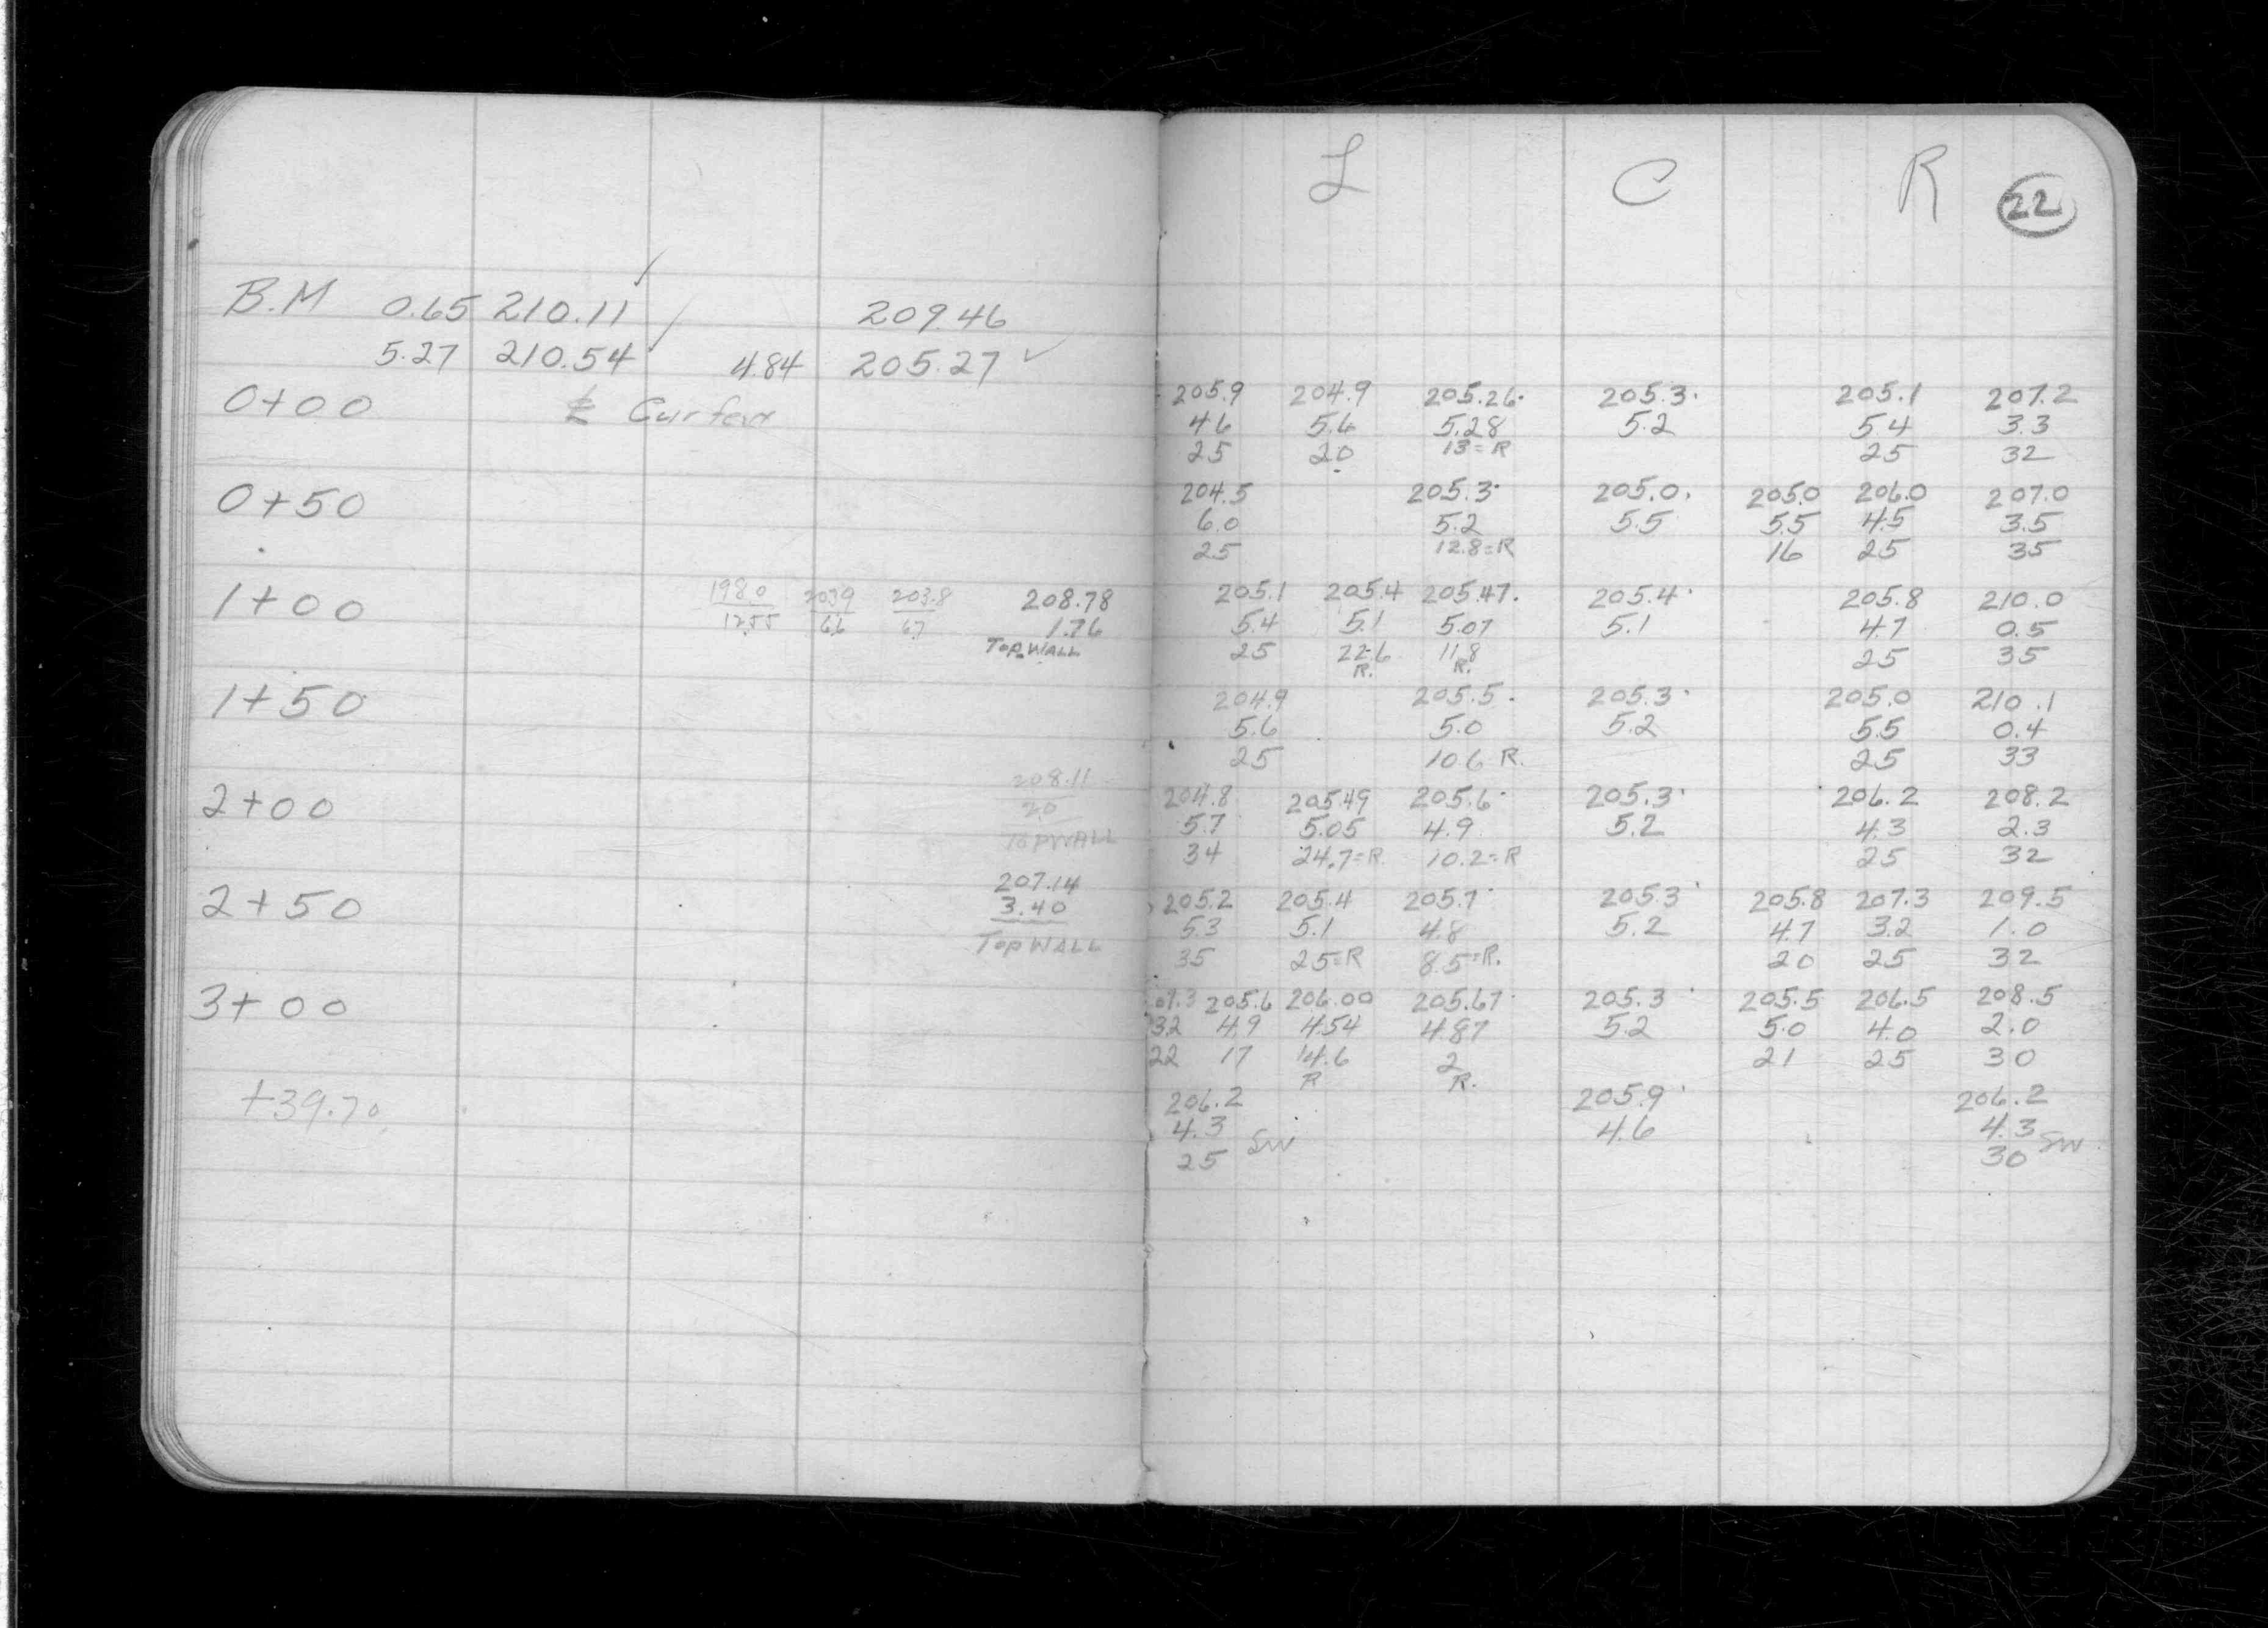 L C R 22
B.M 0.65 210.11 209.46
5.27 210.54 4.84 205.27
0+00 ℄ Curfew
205.9 204.9 205.26 205.3 205.1 207.2
4.6 5.6 5.28 5.2 5.4 3.3
25 20 13=R 25 32
0+50 204.5 205.3 205.0 205.0 206.0 207.0
6.0 5.2 5.5 5.5 4.5 3.5
25 12.8=R 16 25 35
1+00 198.0 203.9 203.8 208.78 205.1 205.4 205.47 205.4 205.8 210.0
12.55 6.6 6.7 1.76 5.4 5.1 5.07 5.1 4.7 0.5
Top WALL 25 22.6 11.8 25 35
R. R.
1+50 204.9 205.5 205.3 205.0 210.1
5.6 5.0 5.2 5.5 0.4
25 10.6 R. 25 33
2+00 208.11 204.8 205.49 205.6 205.3 206.2 208.2
2.0 5.7 5.05 4.9 5.2 4.3 2.3
TOPWALL 34 24.7=R 10.2=R 25 32
2+50 207.14 205.2 205.4 205.7 205.3 205.8 207.3 209.5
3.40 5.3 5.1 4.8 5.2 4.7 3.2 1.0
TOP WALL 35 25=R 8.5=R. 20 25 32
3+00 07.3 205.6 206.00 205.67 205.3 205.5 206.5 208.5
32 4.9 4.54 4.87 5.2 5.0 4.0 2.0
22 17 14.6 2 21 25 30
R R.
+39.70 206.2 205.9 206.2
4.3 SW 4.6 4.3 SW
25 30